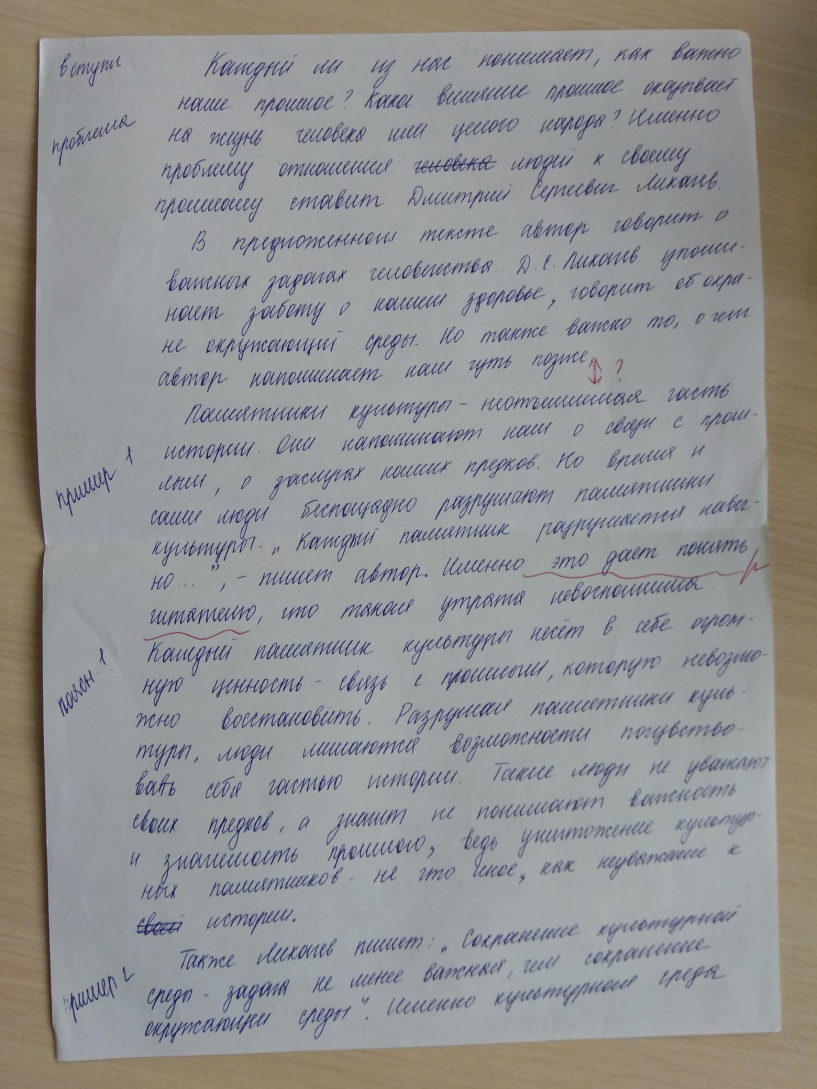 вступл
Каждый ли из нас понимает, как важно
наше прошлое? Какое влияние прошлое оказывает
проблема
на жизнь человека или целого народа? Именно
проблему отношения человека людей к своему
прошлому ставит Дмитрий Сергеевич Лихачев.
В предложенном тексте автор говорит о
важных задачах человечества. Д.С. Лихачев упоми-
нает заботу о нашем здоровье, говорит об охра-
не окружающий среды. Но также важно то, о чем
автор напоминает нам чуть позже
?
Памятники культуры - неотъемлемая часть
истории. Они напоминают нам о связи с прош-
пример 1
лым, о заслугах наших предков. Но время и
сами люди беспощадно разрушают памятники
культуры. „Каждый памятник разрушается навеч-
но...", - пишет автор. Именно это дает понять
читателю, что такая утрата невосполнима.
поясн. 1
Каждый памятник культуры несёт в себе огром-
ную ценность - связь с прошлым, которую невозмо-
жно восстановить. Разрушая памятники куль-
туры, люди лишаются возможности почувство-
вать себя частью истории. Такие люди не уважают
своих предков, а значит не понимают важность
и значимость прошлого, ведь уничтожение культур-
ных памятников - не что иное, как неуважение к
своей истории.
Также Лихачев пишет: „Сохранение культурной
пример 2
среды - задача не менее важная, чем сохранение
окружающей среды". Именно культурная среда